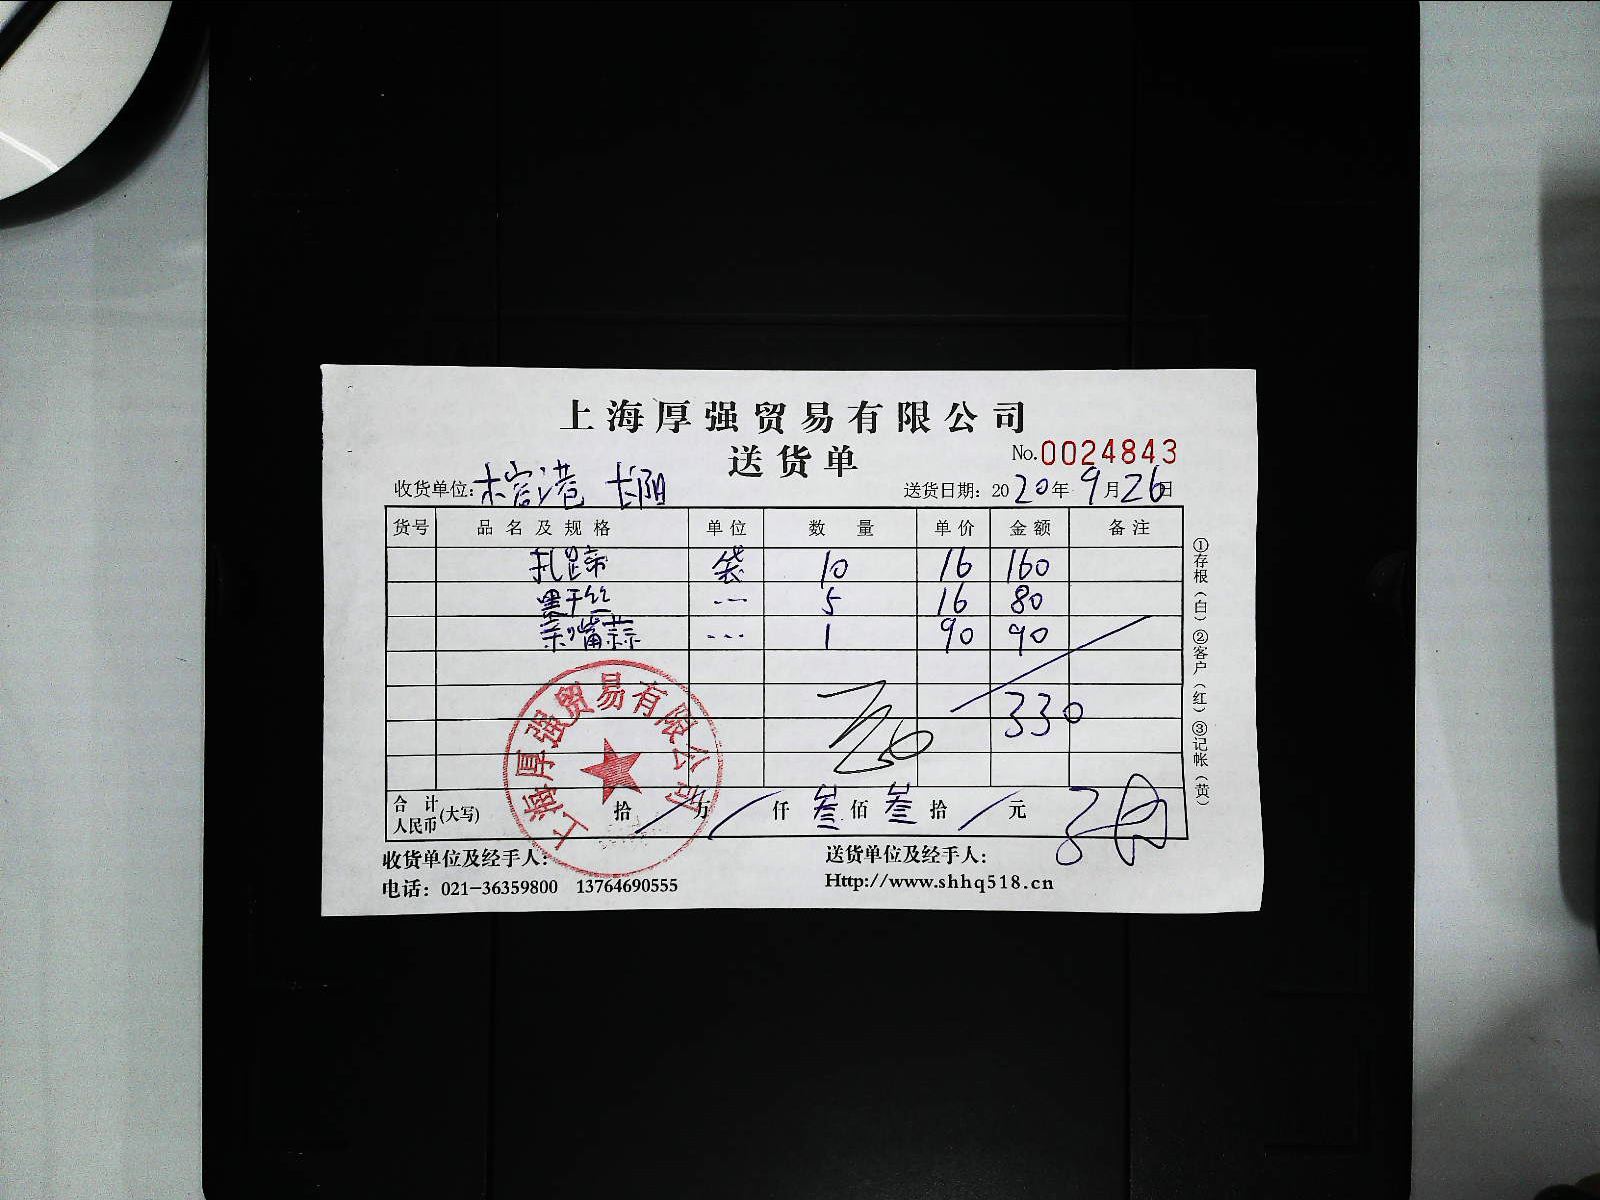 上海厚强贸易有限公司
送货单
No.0024843
收货单位:木宫港 长阳
送货日期: 2020年9月26日
货号 品名及规格 单位 数量 单价 金额 备注
扎蹄 袋 10 16 160
墨干丝 --- 5 16 80
亲嘴蒜 --- 1 90 90
330
合计人民币(大写) 拾 / 万 / 仟 叁 佰 叁 拾 / 元
收货单位及经手人:
送货单位及经手人:
电话: 021-36359800 13764690555
Http://www.shhq518.cn
①存根(白)②客户(红)③记帐(黄)
上海厚强贸易有限公司